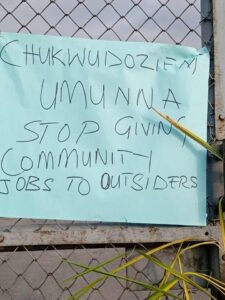 CHUKWUDOZIENI
UMUNNA
STOP GIVING
COMMUNITY
JOBS TO OUTSIDERS